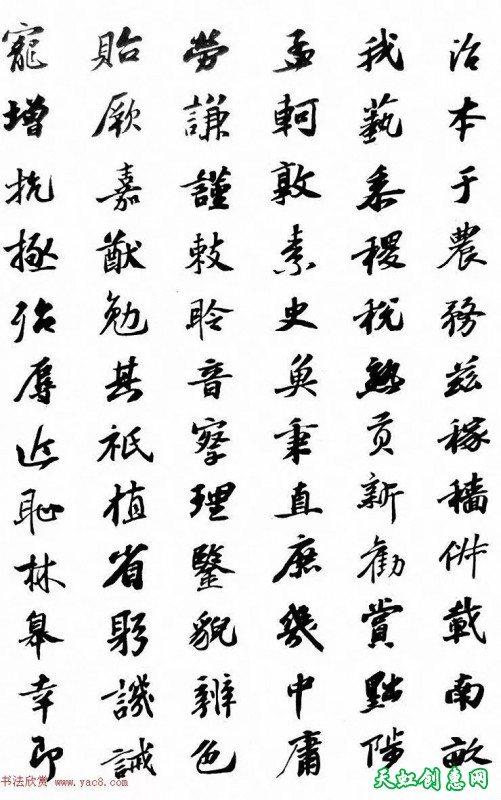 治本于農務茲稼穡俶載南畝
我藝黍稷稅熟貢新勸賞黜陟
孟軻敦素史魚秉直庶幾中庸
勞謙謹敕聆音察理鑒貌辨色
貽厥嘉猷勉其祗植省躬譏誡
寵增抗極殆辱近耻林皋幸即
书法欣赏 www.yac8.com
天虹创惠网